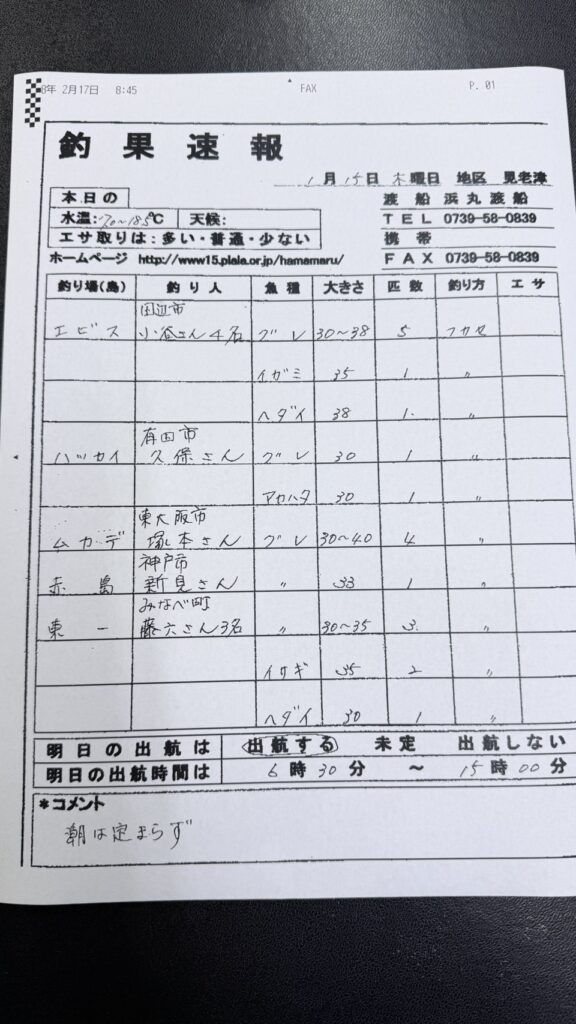 8年 2月17日 8:45 FAX P. 01
釣果速報
1月15日 木曜日 地区 見老津
本日の
渡船 浜丸渡船
水温: ℃ 天候:
TEL 0739-58-0839
エサ取りは:多い・普通・少ない
携帯
ホームページ http://www15.plala.or.jp/hamamaru/
FAX 0739-58-0839
釣り場(島) 釣り人 魚種 大きさ 匹数 釣り方 エサ
田辺市
エビス 小谷さん4名 グレ 30~38 5 フカセ
イガミ 35 1 〃
ヘダイ 38 1 〃
有田市
ハッセイ 久保さん グレ 30 1 〃
アカハタ 30 1 〃
東大阪市
ムカデ 塚本さん グレ 30~40 4 〃
神戸市
赤島 新見さん 〃 33 1 〃
みなべ町
東一 藤六さん3名 〃 30~35 3 〃
イサギ 35 2 〃
ヘダイ 30 1 〃
明日の出航は 出航する 未定 出航しない
明日の出航時間は 6時30分 ~ 15時00分
*コメント
潮は定まらず